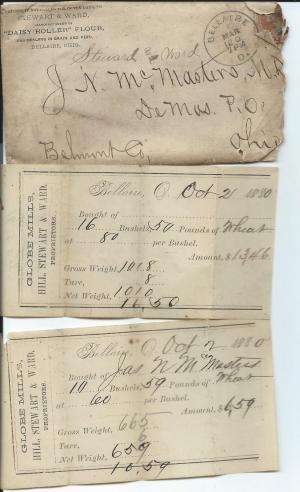 STEWART & WARD,
MANUFACTURERS OF
"DAISY ROLLER" FLOUR,
AND DEALERS IN GRAIN AND FEED,
BELLAIRE, OHIO.
Steward & Ward
BELLAIRE
MAR
O.
J. N. McMasters,
DeMos. P.O.
Belmont Co, Ohio
GLOBE MILLS,
HILL, STEWART & WARD,
PROPRIETORS.
Bellaire, O. Oct 2 1880
Bought of
16 Bushels, 50 Pounds of Wheat
at 80 per Bushel.
Amount, $13,46
Gross Weight, 1018
Tare, 8
Net Weight, 1010
16 50
GLOBE MILLS,
HILL, STEWART & WARD,
PROPRIETORS.
Bellaire, O. Oct 2 1880
Bought of Jas N McMasters
10 Bushels, 59 Pounds of Wheat
at 60 per Bushel.
Amount, $6,59
Gross Weight, 665
Tare, 6
Net Weight, 659
10,59